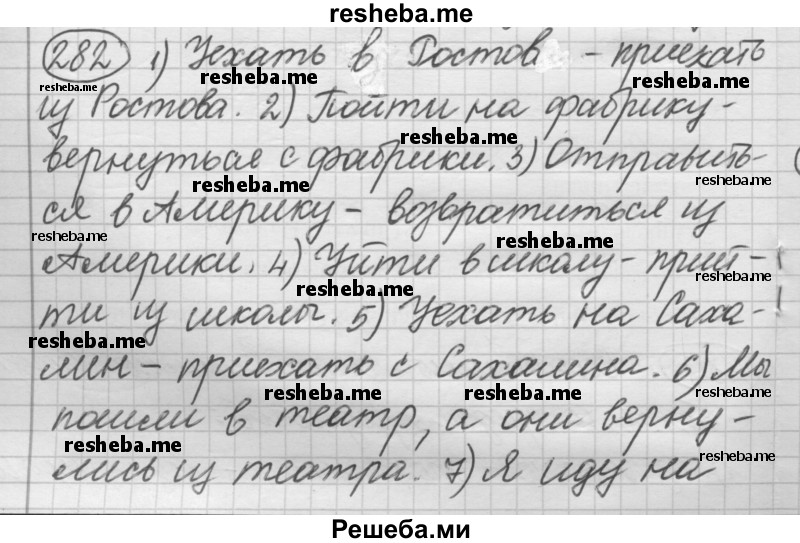 resheba.me
282 1) Уехать в Ростов - приехать
resheba.me resheba.me resheba.me
из Ростова. 2) Пойти на фабрику -
resheba.me
вернуться с фабрики. 3) Отправить-
resheba.me resheba.me
ся в Америку - возвратиться из
resheba.me resheba.me
Америки. 4) Уйти в школу - прий-
resheba.me
ти из школы. 5) Уехать на Саха-
resheba.me
лин - приехать с Сахалина. 6) Мы
resheba.me resheba.me resheba.me
пошли в театр, а они верну-
resheba.me
лись из театра. 7) Я иду на
resheba.me
Решеба.ми